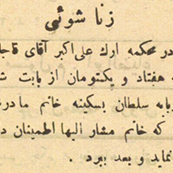 زنا شوئی
در محکمه ارك علی‌اکبر آقای قاجا
هفتاد و یکتومان از بابت
بابه سلطان بسکینه خانم مادر
که خانم مشار الیها اطمینان
نماید و بعد ببرد .